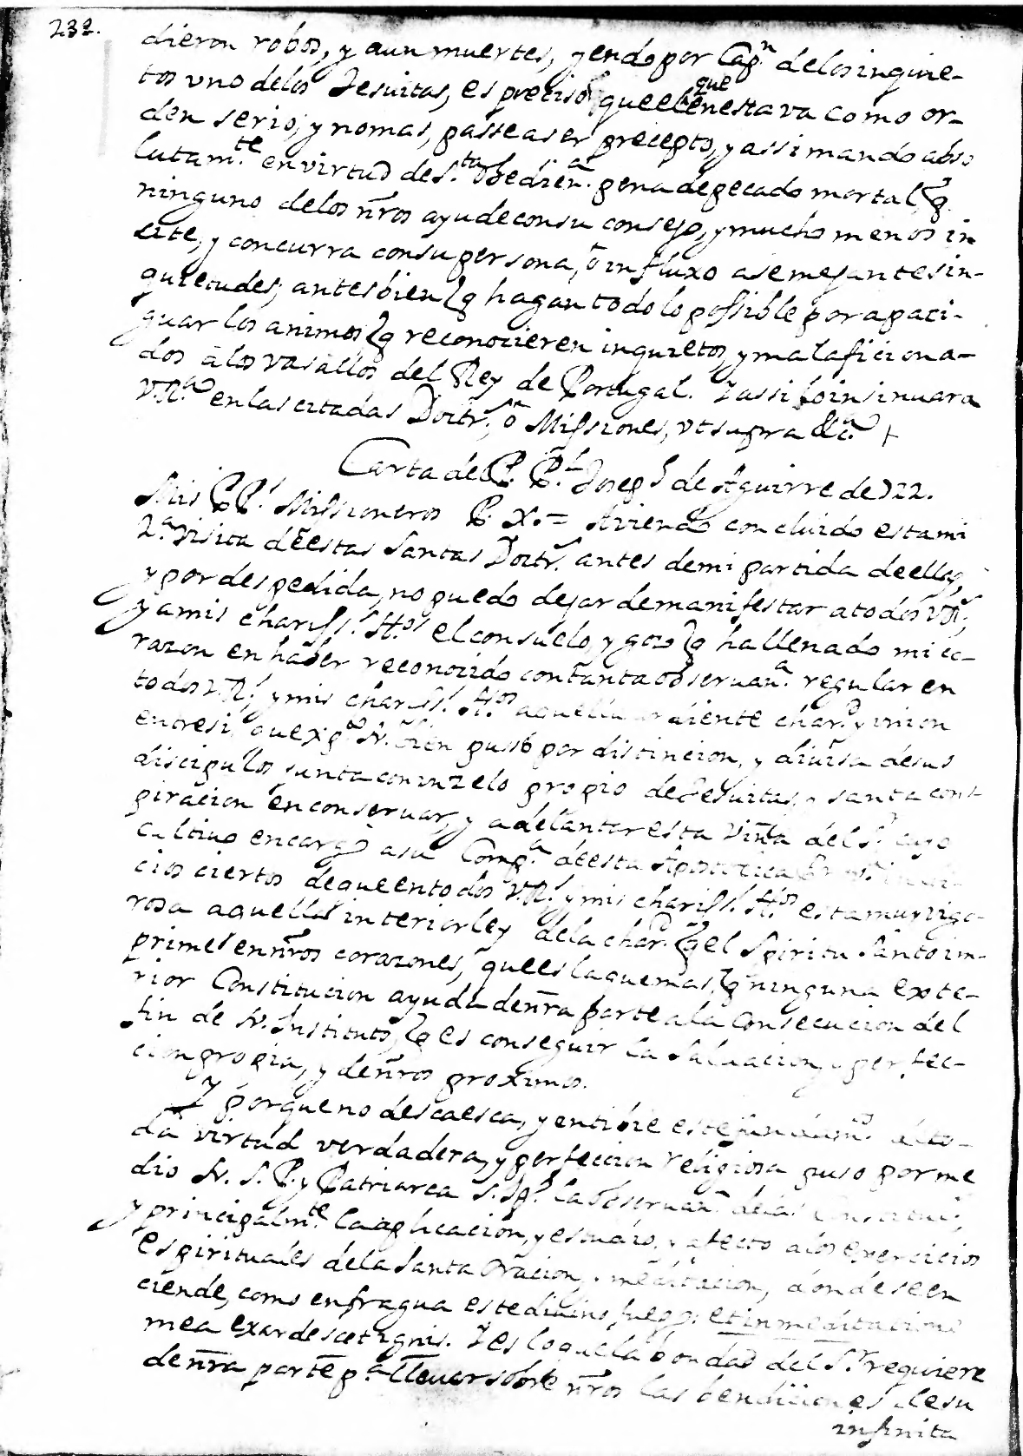 232.
dieron robos, y aun muertes, yendo por Cap.n de los inquie-
tos uno de los Jesuitas, es preciso, que el que en esta va como or-
den serio, y nomas, passe a ser precepto, y assi mando abso
lutam.te en virtud de S.ta obedien.a pena de pecado mortal, q̃
ninguno de los ñros ayude con su consejo, y mucho menos in
cite, y concurra con su persona, ò influxo a semejantes in-
quietudes; antes bien q̃ hagan todo lo possible por apaci-
guar los animos q̃ reconocieren inquietos, y mal aficiona-
dos à los vasallos del Rey de Portugal. Y assi lo insinuara
V.R.a en las citadas Doctr.s ò Missiones, vt supra &c.a +
Carta del P. P.l Joseph de Aguirre de 722.
Mis PP.s Missioneros P. X. = Aviendo concluido esta mi
2.a Visita de estas Santas Doctr.s antes de mi partida de ellas,
y por despedida, no puedo dejar de manifestar a todos V.R.s,
y a mis chariss.s H.os el consuelo, y gozo q̃ ha llenado mi co-
razon en haber reconocido con tanta observan.a regular en
todos V.R.s y mis chariss.s H.os aquella ardiente char.d y union
entre si, que X.po N. Bien puso por distincion, y divisa de sus
discipulos, junta con un zelo propio de Jesuitas, y santa cons-
piracion en conservar, y adelantar esta Viña del S.r cuyo
cultivo encargò a su Comp.a de esta Apostolica
cios ciertos de que en todos V.R.s y mis chariss.s H.os esta muy vigo-
rosa aquella interior ley de la char.d q̃ el Spiritu Santo im-
prime en ñros corazones, que es la que mas, q̃ ninguna exte-
rior Constitucion ayuda de ñra parte a la consecucion del
fin de N. Instituto, q̃ es conseguir la salvacion, y perfec-
cion propia, y de ñros proximos.
Y porque no descaesca, y entibie este fundam.to de to-
da virtud verdadera, y perfeccion religiosa puso por me
dio N. S. P. y Patriarca S. Ig.o la observan.a de las
y principalm.te la aplicacion, y estudio, y afecto a los exercicios
espirituales de la santa Oracion, y meditacion, donde se en
ciende, como en fragua este divino fuego: et in meditacione
mea exardescet ignis. Y es lo que la bondad del S.r requiere
de ñra parte p.a llevar sobre ñros las bendiciones de su
infinita